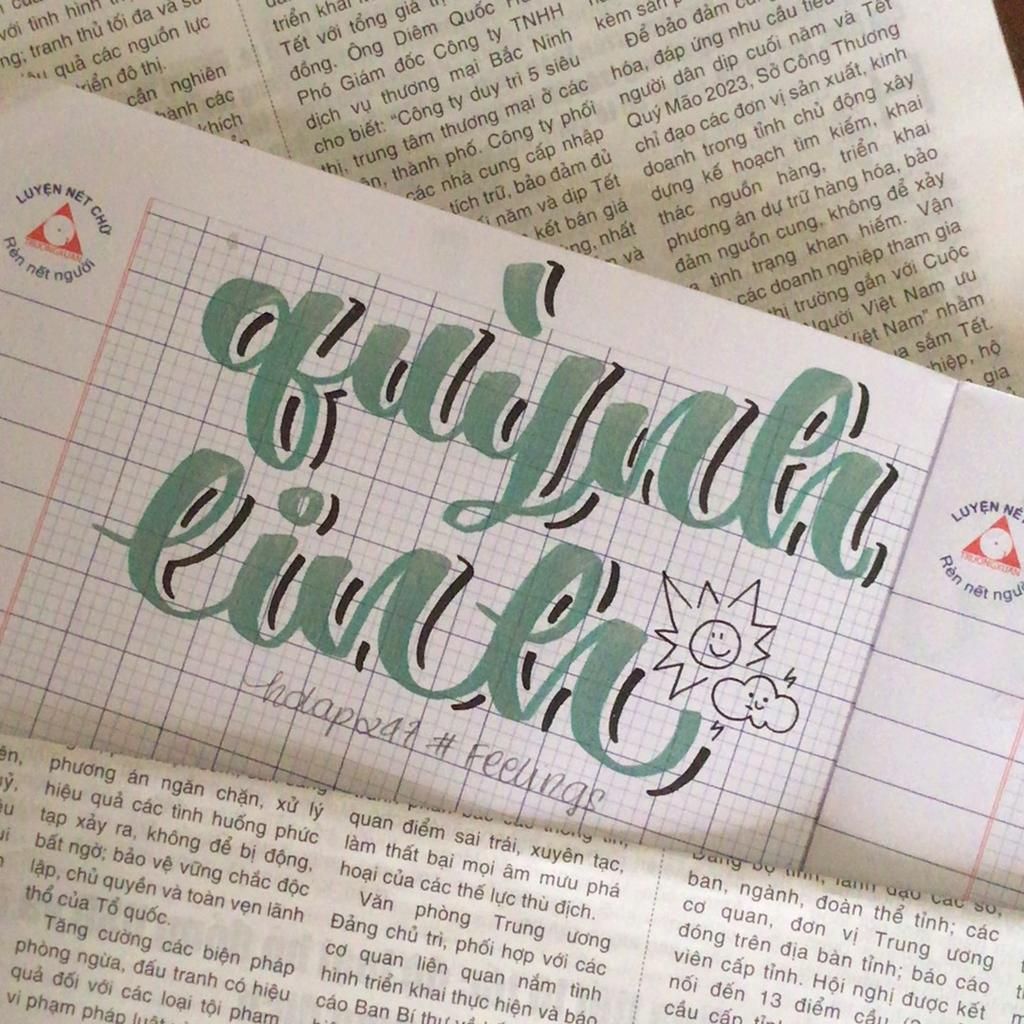 với tình hình
tranh thủ tối đa và
quả các nguồn lực
đô thị.
cần nghiên
các
triển khai
Tết với tổng giá
đồng. Ông Diêm Quốc
Phó Giám đốc Công ty TNHH
dịch vụ thương mại Bắc Ninh
cho biết: “Công ty duy trì 5 siêu
thị, trung tâm thương mại ở các
thành phố. Công ty phối
các nhà cung cấp nhập
tích trữ, bảo đảm đủ
năm và dịp Tết
kết bán giá
nhất
và
kèm
Để bảo đảm
hóa, đáp ứng nhu cầu tiêu
người dân dịp cuối năm và Tết
Quý Mão 2023, Sở Công Thương
chỉ đạo các đơn vị sản xuất, kinh
doanh trong tỉnh chủ động xây
dựng kế hoạch tìm kiếm, khai
thác nguồn hàng, triển khai
phương án dự trữ hàng hóa, bảo
đảm nguồn cung, không để xảy
tình trạng khan hiếm. Vận
các doanh nghiệp tham gia
thị trường gắn với Cuộc
Người Việt Nam ưu
Việt Nam” nhằm
sắm Tết.
hộ
gia
LUYỆN NÉT CHỮ
TRƯỜNGXUÂN
Rèn nết người
quỳnh
linh
hdapx247 # Feelings
LUYỆN NÉT
TRƯỜNGXUÂN
Rèn nết
phương án ngăn chặn, xử lý
hiệu quả các tình huống phức
tạp xảy ra, không để bị động,
bất ngờ; bảo vệ vững chắc độc
lập, chủ quyền và toàn vẹn lãnh
thổ của Tổ quốc.
Tăng cường các biện pháp
phòng ngừa, đấu tranh có hiệu
quả đối với các loại tội phạm
vi phạm pháp luật
quan điểm sai trái, xuyên tạc,
làm thất bại mọi âm mưu phá
hoại của các thế lực thù địch.
Văn phòng Trung ương
Đảng chủ trì, phối hợp với các
cơ quan liên quan nắm tình
hình triển khai thực hiện và báo
cáo Ban Bí thư
Đảng bộ tỉnh, lãnh đạo các sở,
ban, ngành, đoàn thể tỉnh; các
cơ quan, đơn vị Trung ương
đóng trên địa bàn tỉnh; báo cáo
viên cấp tỉnh. Hội nghị được kết
nối đến 13 điểm cầu
cầu cấp